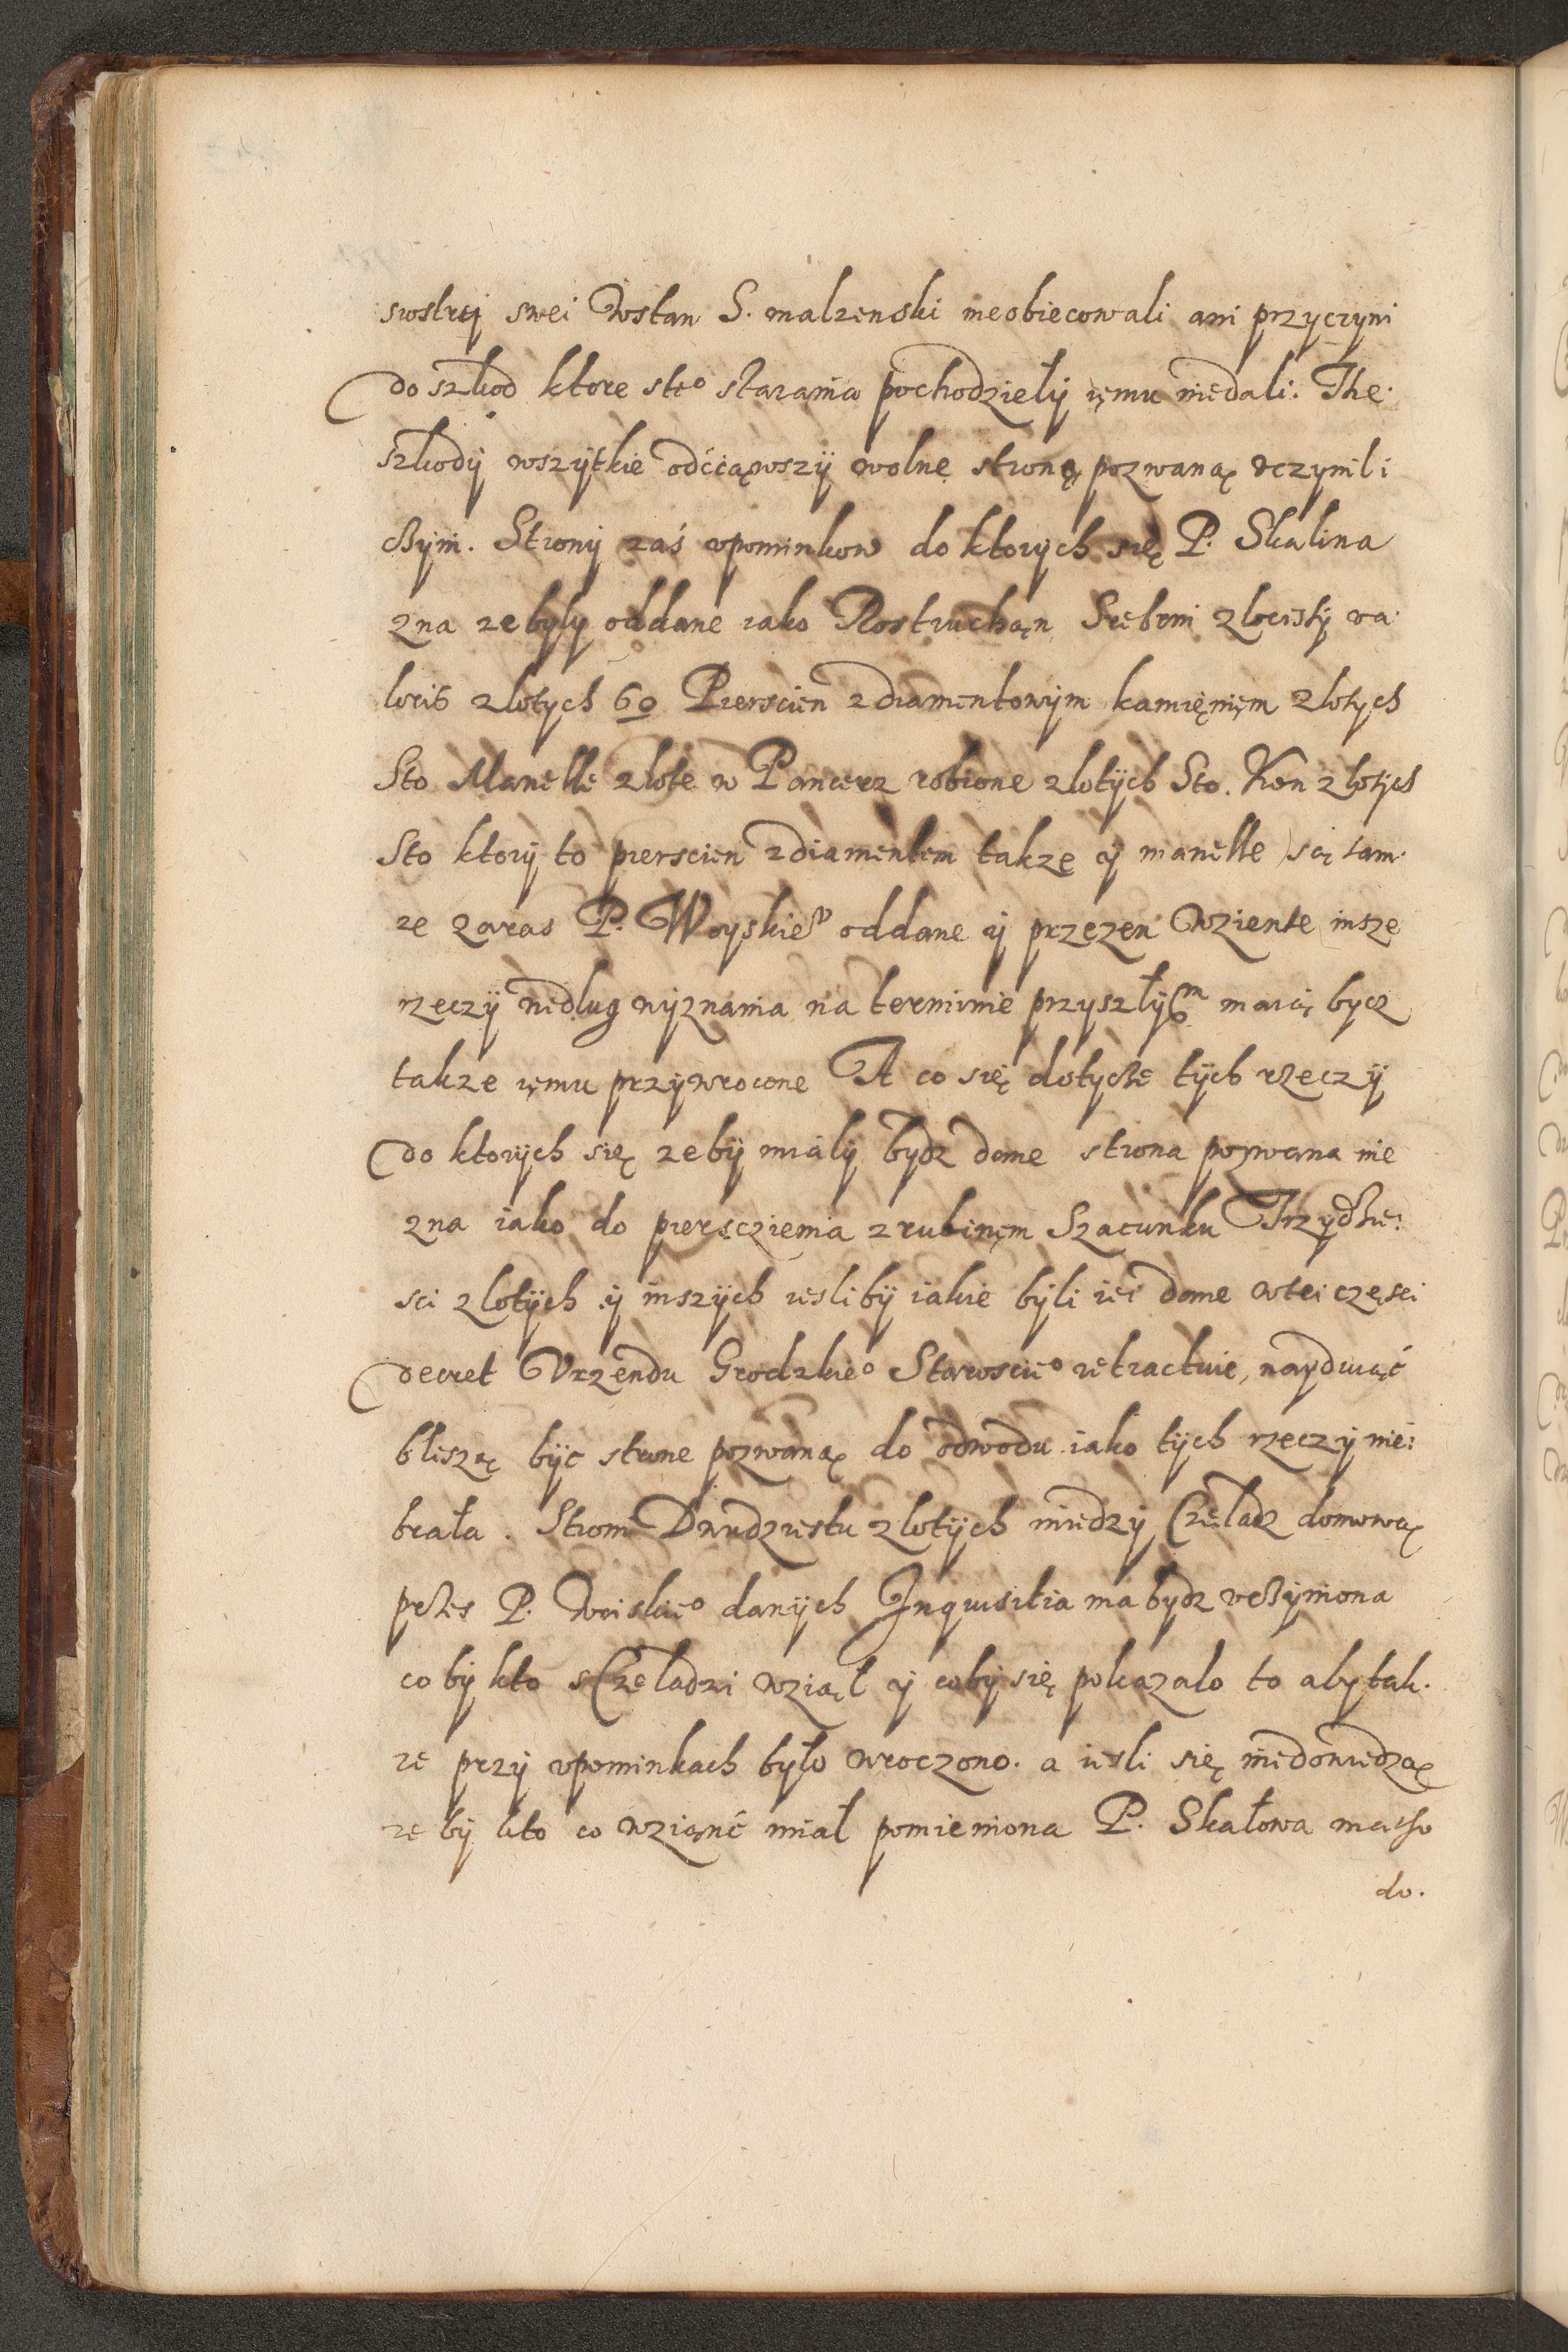 siostrej swei wstan S. malzenski nieobiecowali ani przyczyni
do szkod ktore zteº starania pochodziely iemu niedali. The
szkody wszytkie odciąwszy wolne stronę pozwaną uczynili
chmy. Strony zaś upominkow do ktorych się P. Skalina
zna zebyly oddane iako Rostruchan Srebrni zlocisty va
loris zlotych 60 Pierscien zdiamentowym kamięniem zlotych
Sto Manelle zlote w Pancerz robione zlotych Sto. Kon zlotych
Sto ktory to pierscien zdiamentem takze y manelle są tam
ze zaras P. Woyskieº oddane y przezen wziente insze
rzeczy niedlug wyznania na terminie przyszłym maią bycz
takze iemu przywrocone A co się dotycze tych rzeczy
do ktorych się zeby mialy bydz dane strona pozwana nie
zna iako do piersczienia zrubinem Szacunku Trzydzie:
sci zlotych y inszych iesliby iakie byli iei dane wtei częsci
decret Vrzendu Grodzkieº Staroscieº retractuie, nayduiąć
bliszą być strone pozwaną do odwodu iako tych rzeczy nie:
brała. Strone Dwudziestu zlotych miedzy Czeladz domową
przes P. Woiskieº danych Inquisitia ma bydz uczyniona
coby kto sCzeladzi wziąl y coby się pokazalo to aby tak.
ze przy upominkach było wroczono. a iesli się niedowiedzą
ze by kto co wziąnć miał pomieniona P. Skałowa
do.